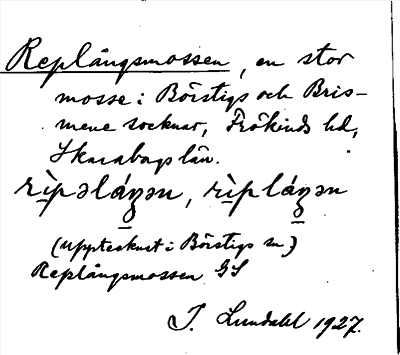 Replångsmossen, en stor
mosse i Börstigs och Bris-
mene socknar, Frökinds hd,
Skaraborgs län.
rìpəláŋən, rìpláŋən
(upptecknat i Börstigs sn)
Replångsmossen GS
I. Lundahl 1927.